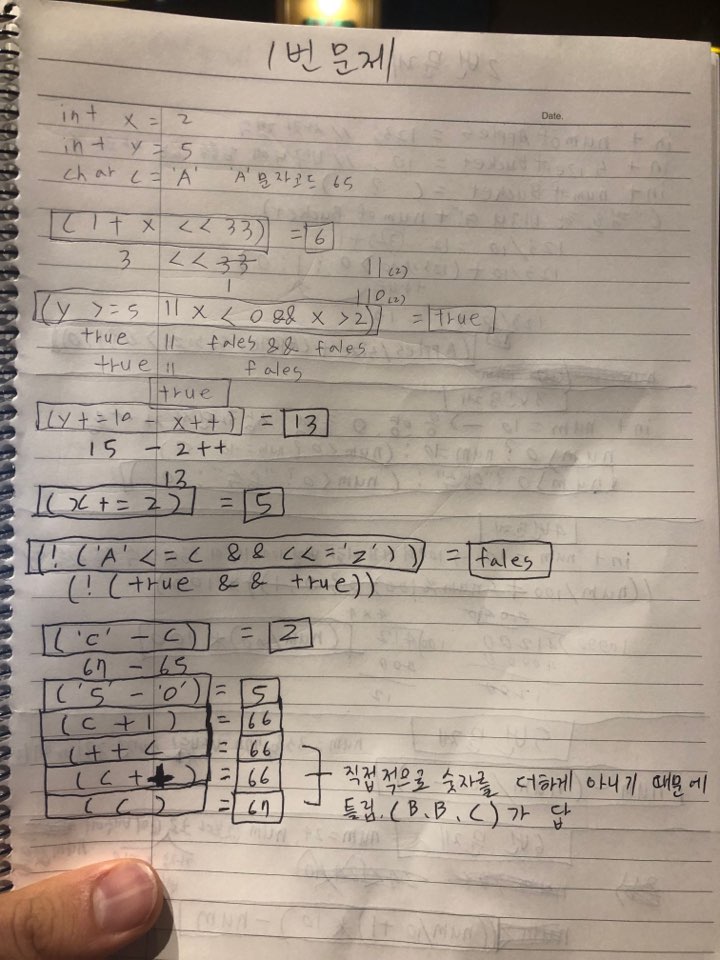 1번문제
Date.
int x = 2
int y = 5
char c = 'A' 'A'문자코드 65
(1 + x << 33) = 6
3 << 33 11(2)
1 110(2)
(y >= 5 || x < 0 && x > 2) = true
true || fales && fales
true || fales
true
(y += 10 - x++) = 13
15 - 2++
13
(x += 2) = 5
(! ('A' <= c && c <= 'z')) = fales
(! (true && true))
('c' - c) = 2
67 - 65
('5' - '0') = 5
(c + 1) = 66
(++c = 66 직접적으로 숫자를 더하게 아니기 때문에
(c++) = 66 틀림. (B, B, C)가 답
(c) = 67